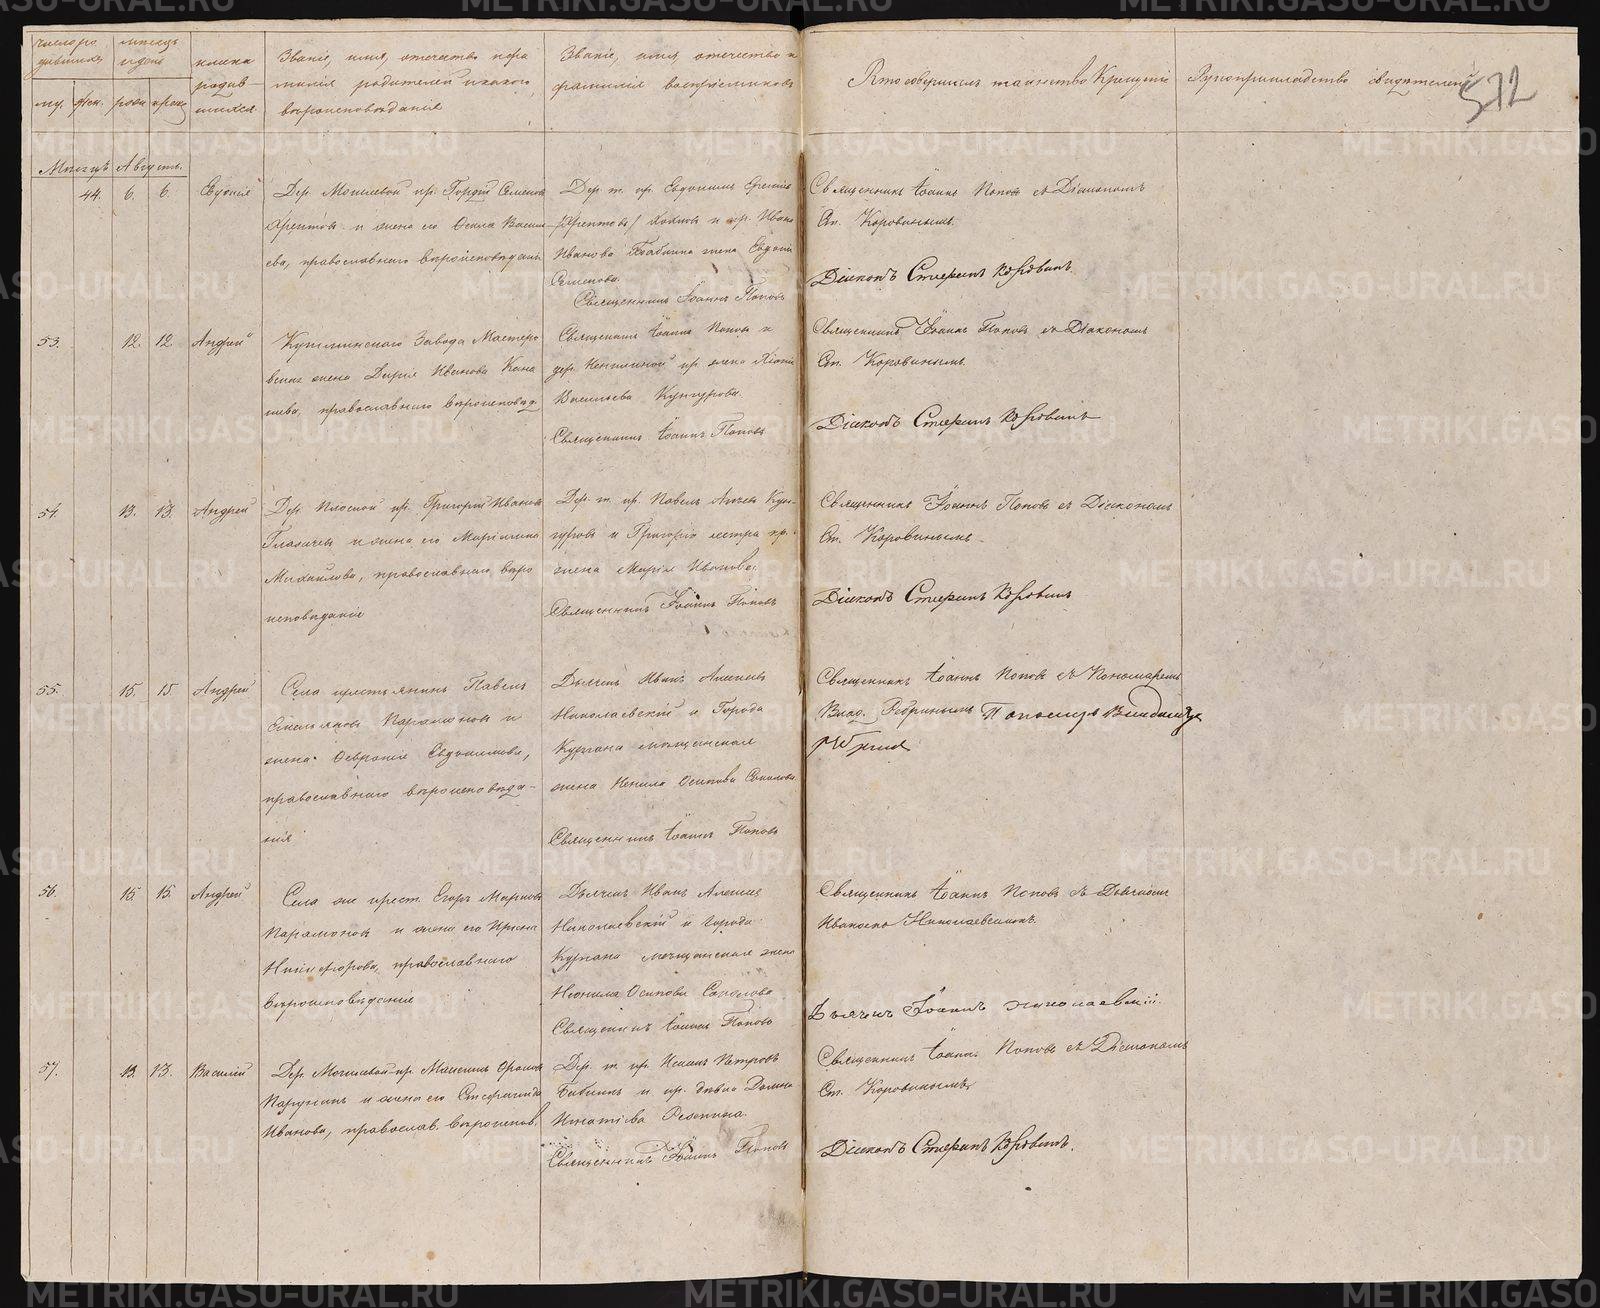 число ро
дившихся
месяцъ
и день
имена
родив-
шихся
Званіе, имя, отчество и фа
милія родителей и какого
вѣроисповѣданія
Званіе, имя, отчество и
фамилія воспріемниковъ
Кто совершалъ таинство Крещенія
Рукоприкладство свидетелей
572
му. жен. рожд крещ
Мѣсяцъ Августъ.
44. 6. 6.
Дер. Могилевой кр. Гордѣй Семеновъ
и жена его Васильева, православнаго вѣроисповѣданія
Дер. т. кр. Евдокимъ
и кр. Ивана
Иванова Бабкина жена Евдокія
Семенова.
Священникъ Іоаннъ Поповъ
Священникъ Іоаннъ Поповъ съ Діакономъ
Ст. Коровинымъ.
Діаконъ Стефанъ Коровинъ
53. 12. 12. Андрей
Кушвинскаго Завода Мастеро
вская жена Дарія Иванова
православнаго вѣроисповѣд.
Священникъ Іоаннъ Поповъ и
дер. кр. жена
Васильева Кунгурова.
Священникъ Іоаннъ Поповъ
Священникъ Іоаннъ Поповъ съ Діакономъ
Ст. Коровинымъ.
Діаконъ Стефанъ Коровинъ
54. 13. 13. Андрей
Дер. Плоской кр. Григорій Ивановъ
и жена его
Михайлова, православнаго вѣро
исповѣданія
Дер. т. кр. Павелъ Кун-
гуровъ и Григорія сестра кр.
жена Марія Иванова.
Священникъ Іоаннъ Поповъ
Священникъ Іоаннъ Поповъ съ Діакономъ
Ст. Коровинымъ.
Діаконъ Стефанъ Коровинъ
55. 15. 15. Андрей
Села крестьянинъ Павелъ
Емельяновъ Парамоновъ и
жена Февронія Евдокимова,
православнаго вѣроисповѣда-
нія
Дьячекъ Иванъ Алексѣевъ
Николаевскій и Города
Кургана мѣщанская
жена Ненила Осипова Соколова
Священникъ Іоаннъ Поповъ
Священникъ Іоаннъ Поповъ съ Пономаремъ
Влад. Ребринымъ
56. 15. 15. Андрей
Села же крест. Егоръ Марковъ
Парамоновъ и жена его Ирина
Никифорова, православнаго
вѣроисповѣданія
Дьячекъ Иванъ Алексѣевъ
Николаевскій и Города
Кургана мѣщанская жена
Неонила Осипова Соколова
Священникъ Іоаннъ Поповъ
Священникъ Іоаннъ Поповъ съ Дьячкомъ
Иваномъ Николаевскимъ.
Дьячекъ Іоаннъ Николаевскій.
57. 13. 13. Василій
Дер. Могилевой кр. Максимъ
и жена его Стефанида
Иванова, православ. вѣроисповѣд.
Дер. т. кр. Петровъ
Бабкинъ и кр. дѣвка Домна
Игнатіева
Священникъ Іоаннъ Поповъ
Священникъ Іоаннъ Поповъ съ Діакономъ
Ст. Коровинымъ.
Діаконъ Стефанъ Коровинъ.
METRIKI.GASO-URAL.RU